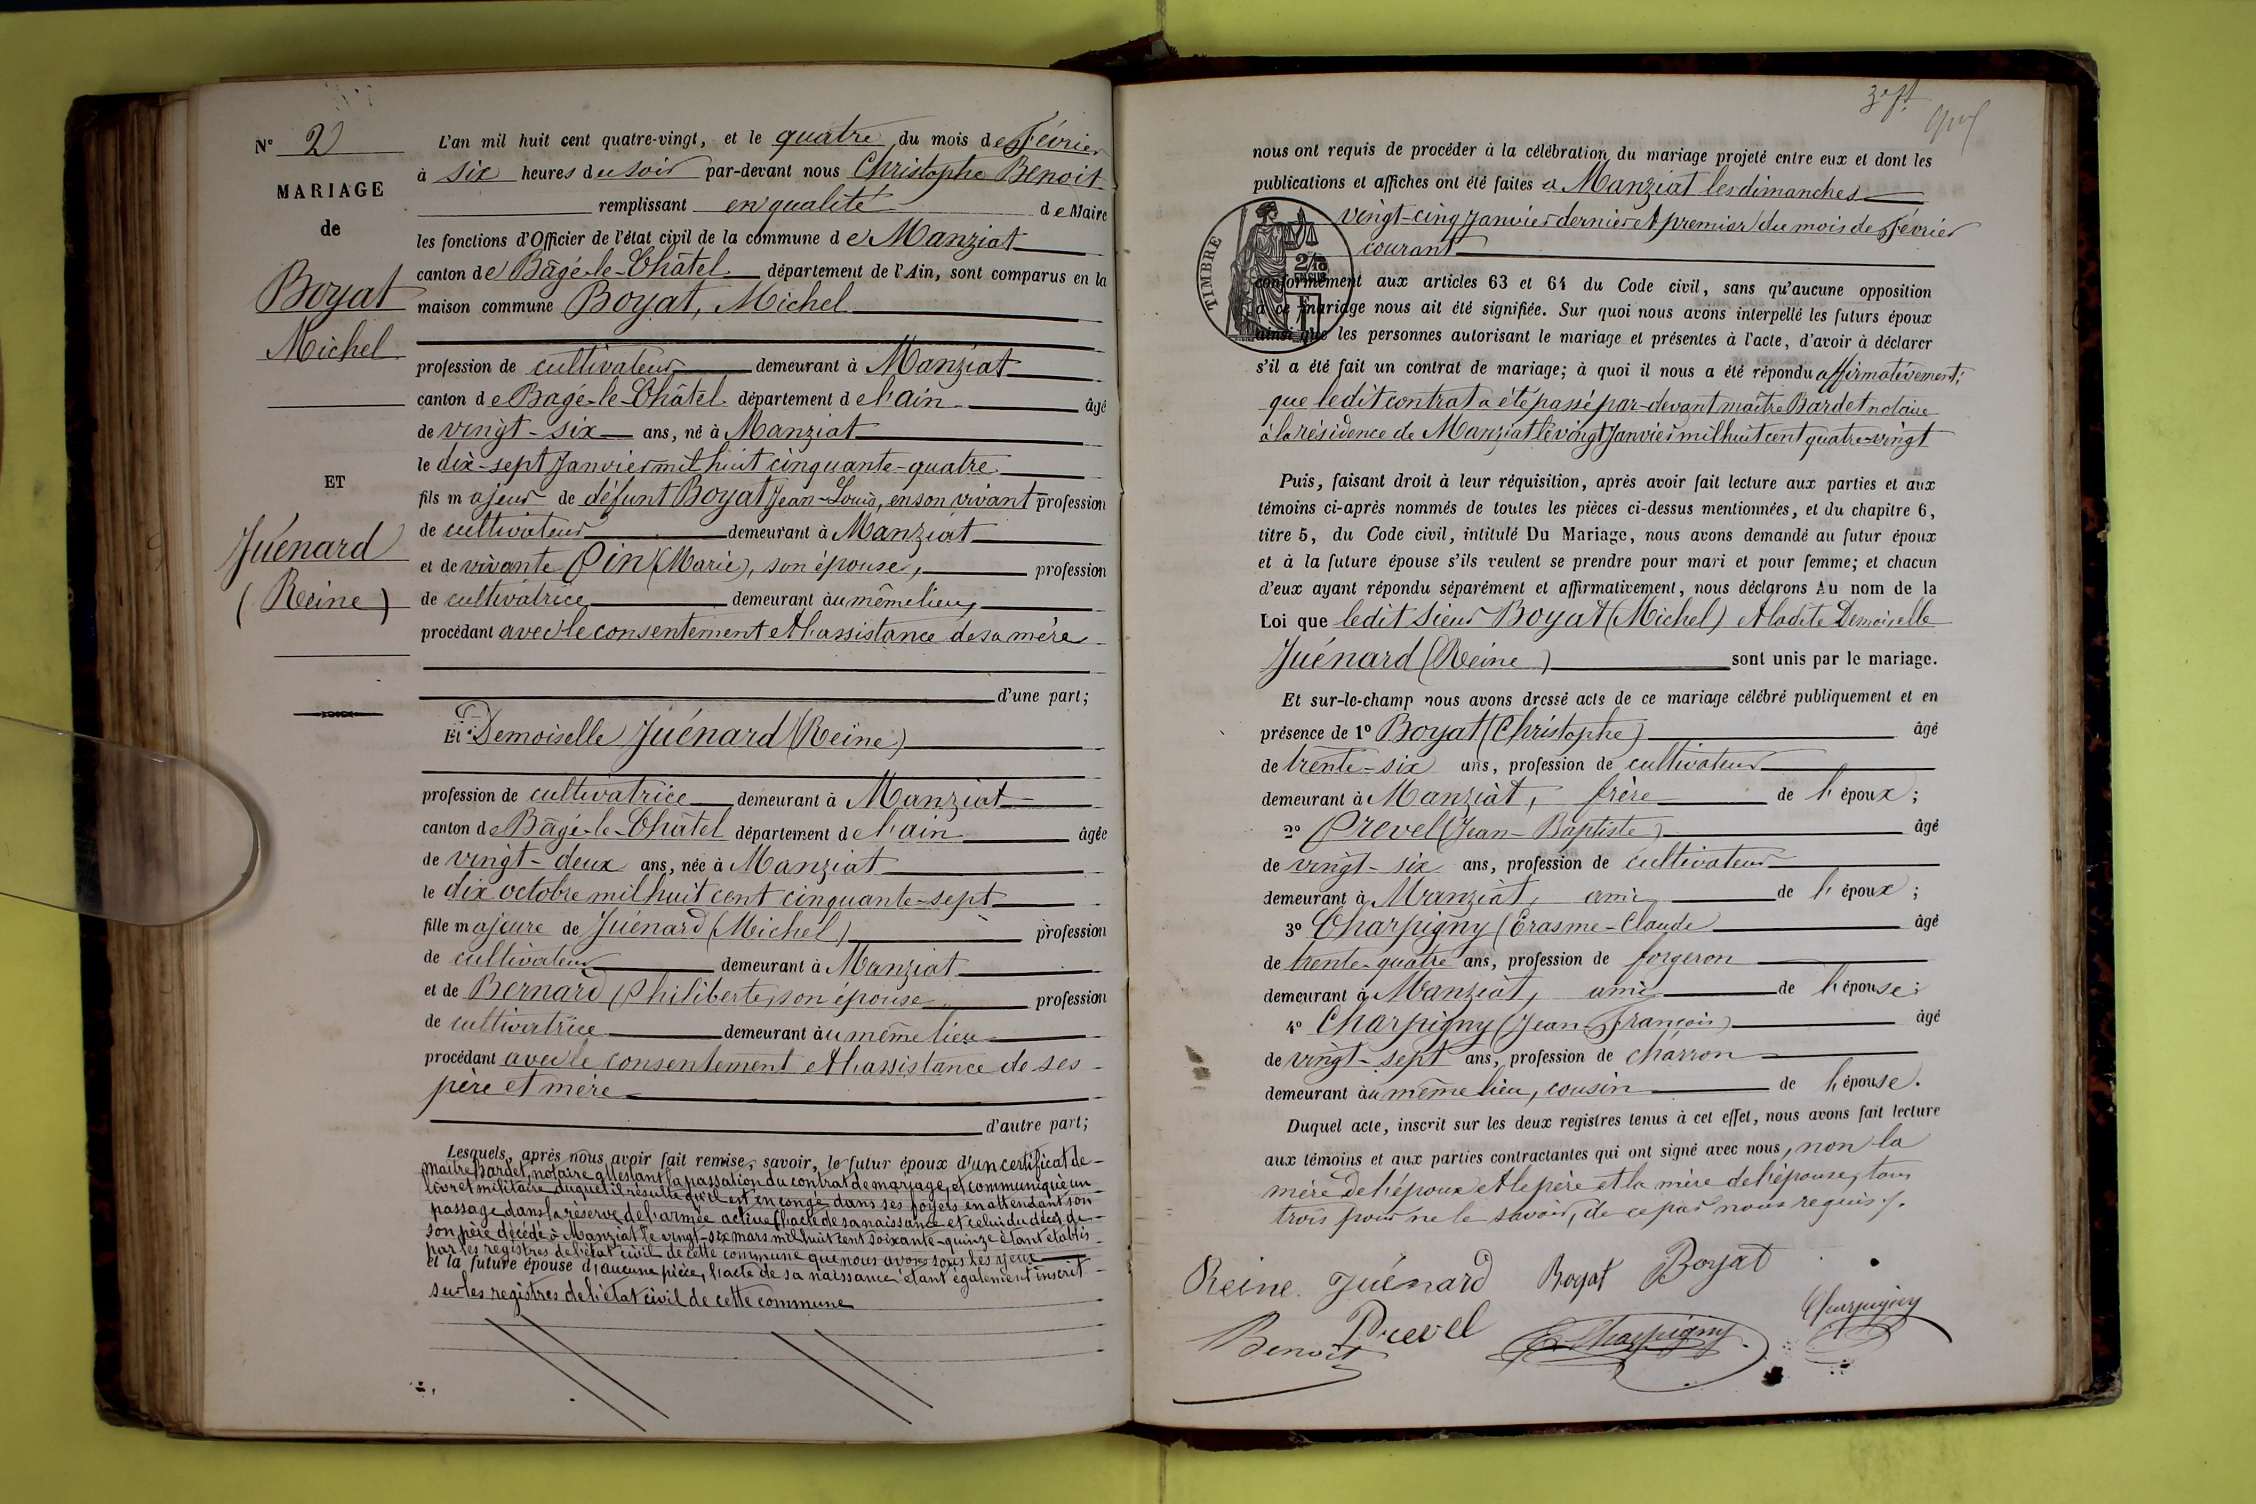 N° 2
MARIAGE
de
Boyat
Michel
ET
Juénard
(Reine)
L'an mil huit cent quatre-vingt, et le quatre du mois de Février
à six heures du soir par-devant nous Christophe Benoit
remplissant en qualité de Maire
les fonctions d'Officier de l'état civil de la commune de Manziat
canton de Bâgé-le-Châtel département de l'Ain, sont comparus en la
maison commune Boyat, Michel
profession de cultivateur demeurant à Manziat
canton de Bagé-le-Châtel département de l'ain âgé
de vingt-six ans, né à Manziat
le dix-sept Janvier mil huit cinquante-quatre
fils majeur de défunt Boyat Jean-Louis, en son vivant profession
de cultivateur demeurant à Manziat
et de vivante Pin (Marie), son épouse, profession
de cultivatrice demeurant au même lieu,
procédant avec le consentement et l'assistance de sa mère
d'une part;
Et Demoiselle Juénard (Reine)
profession de cultivatrice demeurant à Manziat
canton de Bâgé-le-Châtel département de l'ain âgée
de vingt-deux ans, née à Manziat
le dix octobre mil huit cent cinquante-sept
fille majeure de Juénard (Michel) profession
de cultivateur demeurant à Manziat
et de Bernard Philiberte, son épouse profession
de cultivatrice demeurant au même lieu
procédant avec le consentement et l'assistance de ses
père et mère
d'autre part;
Lesquels, après nous avoir fait remise, savoir, le futur époux d'un certificat de
maître Bardet, notaire attestant la passation du contrat de mariage, et communiqué un
livret militaire duquel il résulte qu'il est en congé dans ses foyers en attendant son
passage dans la réserve de l'armée active l'acte de sa naissance et celui du décès de
son père décédé à Manziat le vingt-six mars mil huit cent soixante-quinze étant établis
par les registres de l'état civil de cette commune que nous avons sous les yeux
et la future épouse d'aucune pièce, l'acte de sa naissance étant également inscrit
sur les registres de l'état civil de cette commune
nous ont requis de procéder à la célébration du mariage projeté entre eux et dont les
publications et affiches ont été faites à Manziat les dimanches
vingt-cinq Janvier dernier et premier du mois de Février
courant
TIMBRE
conformément aux articles 63 et 64 du Code civil, sans qu'aucune opposition
à ce mariage nous ait été signifiée. Sur quoi nous avons interpellé les futurs époux
ainsi que les personnes autorisant le mariage et présentes à l'acte, d'avoir à déclarer
s'il a été fait un contrat de mariage; à quoi il nous a été répondu affirmativement;
que ledit contrat a été passé par-devant maître Bardet notaire
à la résidence de Manziat le vingt Janvier mil huit cent quatre-vingt
Puis, faisant droit à leur réquisition, après avoir fait lecture aux parties et aux
témoins ci-après nommés de toutes les pièces ci-dessus mentionnées, et du chapitre 6,
titre 5, du Code civil, intitulé Du Mariage, nous avons demandé au futur époux
et à la future épouse s'ils veulent se prendre pour mari et pour femme; et chacun
d'eux ayant répondu séparément et affirmativement, nous déclarons Au nom de la
Loi que ledit sieur Boyat (Michel) et ladite Demoiselle
Juénard (Reine) sont unis par le mariage.
Et sur-le-champ nous avons dressé acte de ce mariage célébré publiquement et en
présence de 1° Boyat (Christophe) âgé
de trente-six ans, profession de cultivateur
demeurant à Manziat, frère de l'époux;
2° Prevel (Jean-Baptiste) âgé
de vingt-six ans, profession de cultivateur
demeurant à Manziat, ami de l'époux;
3° Charpigny (Erasme-Claude âgé
de trente-quatre ans, profession de forgeron
demeurant à Manziat, ami de l'épouse;
4° Charpigny (Jean-François) âgé
de vingt-sept ans, profession de charron
demeurant au même lieu, cousin de l'épouse.
Duquel acte, inscrit sur les deux registres tenus à cet effet, nous avons fait lecture
aux témoins et aux parties contractantes qui ont signé avec nous, non la
mère de l'époux et le père et la mère de l'épouse, tous
trois pour ne le savoir, de ce par nous requis.
Reine Juénard Boyat Boyat
Benoit Prevel Charpigny Charpigny